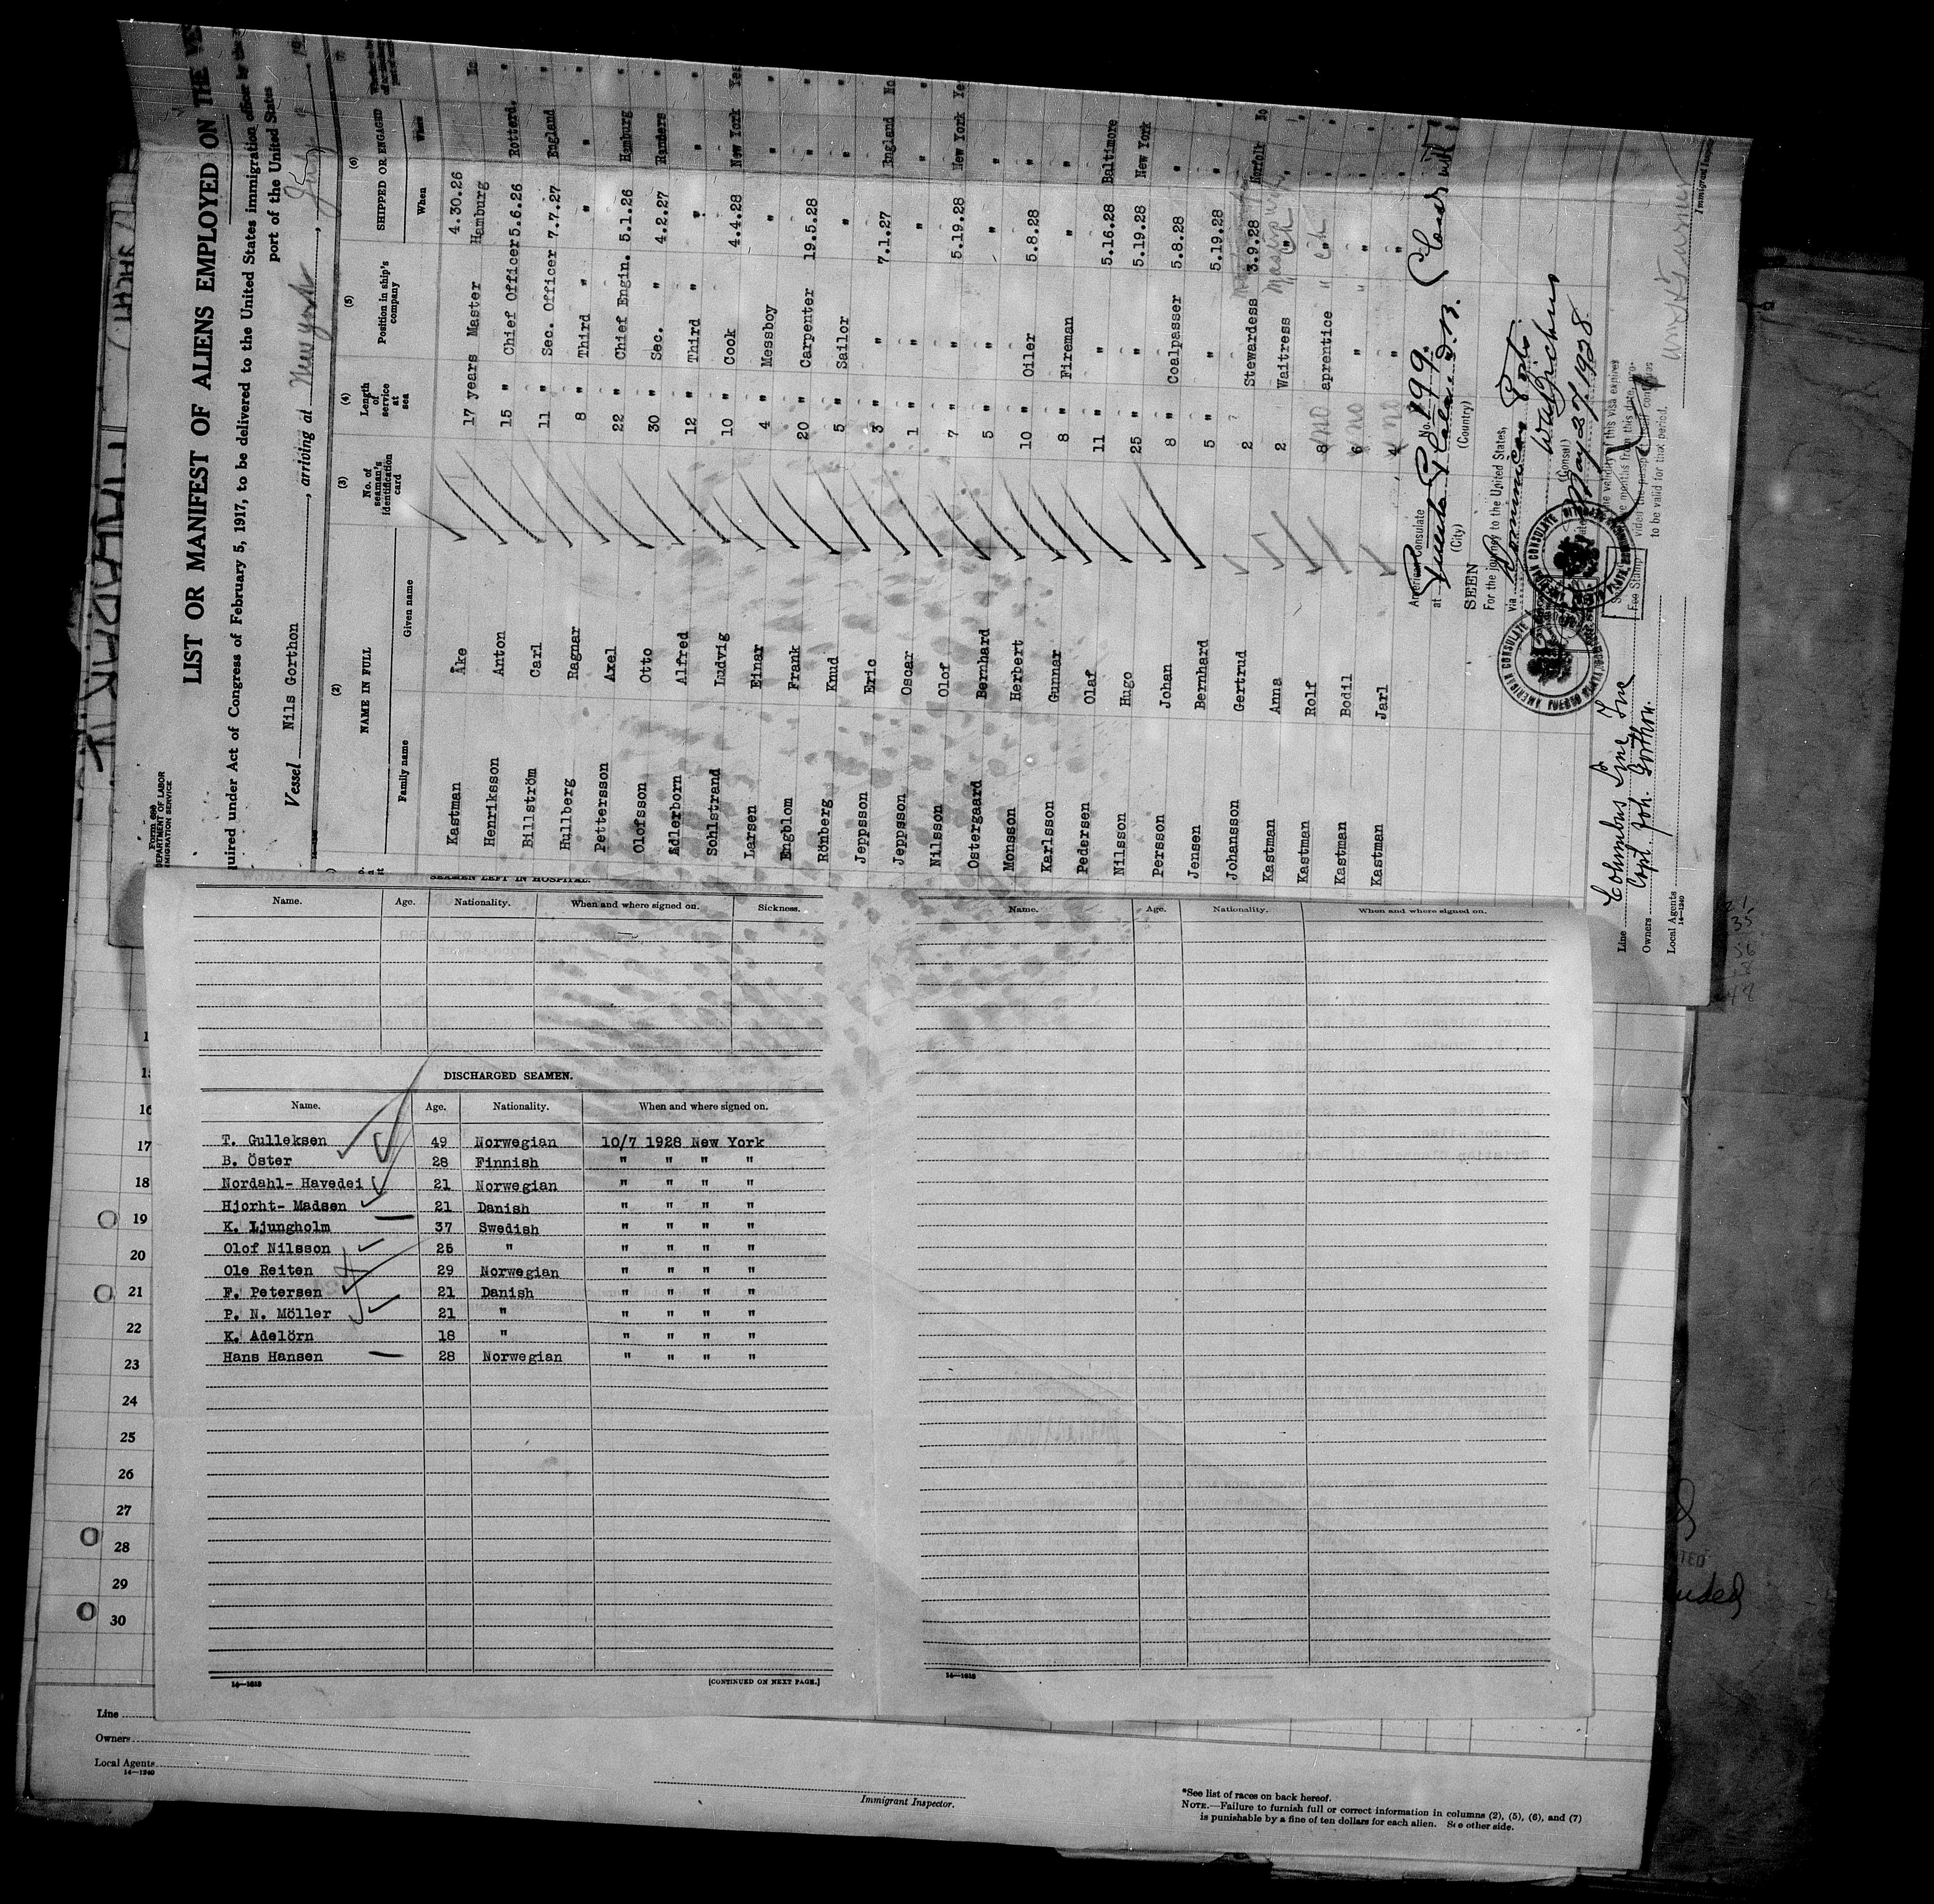 Form 680
DEPARTMENT OF LABOR
IMMIGRATION SERVICE
LIST OR MANIFEST OF ALIENS EMPLOYED ON THE VES
quired under Act of Congress of February 5, 1917, to be delivered to the United States immigration officer by the
port of the United States
Vessel Nils Gorthon, arriving at New York, July 9, 19
(2) (3) (4) (5) (6)
NAME IN FULL No. of seaman's identification card Length of service at sea Position in ship's company SHIPPED OR ENGAGED
Family name Given name When Where
Kastman Åke 17 years Master 4.30.26 Hamburg No
Henriksson Anton 15 " Chief Officer 5.6.26 Rotterd. "
Billström Carl 11 " Sec. Officer 7.7.27 England "
Hullberg Ragnar 8 " Third " " " "
Pettersson Axel 22 " Chief Engin. 5.1.26 Hamburg "
Olofsson Otto 30 " Sec. " 4.2.27 Randers "
Adlerborn Alfred 12 " Third " " " "
Sohlstrand Ludvig 10 " Cook 4.4.28 New York Yes
Larsen Einar 4 " Messboy " " "
Engblom Frank 20 " Carpenter 19.5.28 " "
Rönberg Knud 5 " Sailor " " "
Jeppsson Eric 3 " " 7.1.27 England No
Jeppsson Oscar 1 " " " " "
Nilsson Olof 7 " " 5.19.28 New York Yes
Ostergaard Bernhard 5 " " " " "
Monsson Herbert 10 " Oiler 5.8.28 " "
Karlsson Gunnar 8 " Fireman " " "
Pedersen Olaf 11 " " 5.16.28 Baltimore "
Nilsson Hugo 25 " " 5.19.28 New York "
Persson Johan 8 " Coalpasser 5.8.28 " "
Jensen Bernhard 5 " " 5.19.28 " "
Johansson Gertrud 2 Stewardess 3.9.28 Norfolk No
Kastman Anna 2 Waitress " " "
Kastman Rolf 8 no aprentice " " "
Kastman Bodil 6 no " " " "
Kastman Jarl 4 no " " " "
American Consulate No. 199
at Puerto Plata D.R.
(City) (Country)
SEEN
For the journey to the United States,
via Dominican Ports
(Consul)
May 27, 1928
AMERICAN CONSULATE
Fee Stamp
to be valid for that period.
Line Columbus Line Inc
Owners Capt. Joh. Gorthon.
Local Agents
14—1240
Immigrant Inspec
SEAMEN LEFT IN HOSPITAL.
Name. Age. Nationality. When and where signed on. Sickness.
DISCHARGED SEAMEN.
Name. Age. Nationality. When and where signed on.
T. Gulleksen 49 Norwegian 10/7 1928 New York
B. Öster 28 Finnish " " " "
Nordahl- Havedei 21 Norwegian " " " "
Hjorht- Madsen 21 Danish " " " "
K. Ljungholm 37 Swedish " " " "
Olof Nilsson 25 " " " " "
Ole Reiten 29 Norwegian " " " "
F. Petersen 21 Danish " " " "
P. N. Möller 21 " " " " "
K. Adelörn 18 " " " " "
Hans Hansen 28 Norwegian " " " "
14—1618 [CONTINUED ON NEXT PAGE.]
Name. Age. Nationality. When and where signed on.
14—1618
16
17
18
19
20
21
22
23
24
25
26
27
28
29
30
Line
Owners
Local Agents
14—1240
Immigrant Inspector.
*See list of races on back hereof.
NOTE.—Failure to furnish full or correct information in columns (2), (5), (6), and (7)
is punishable by a fine of ten dollars for each alien. See other side.